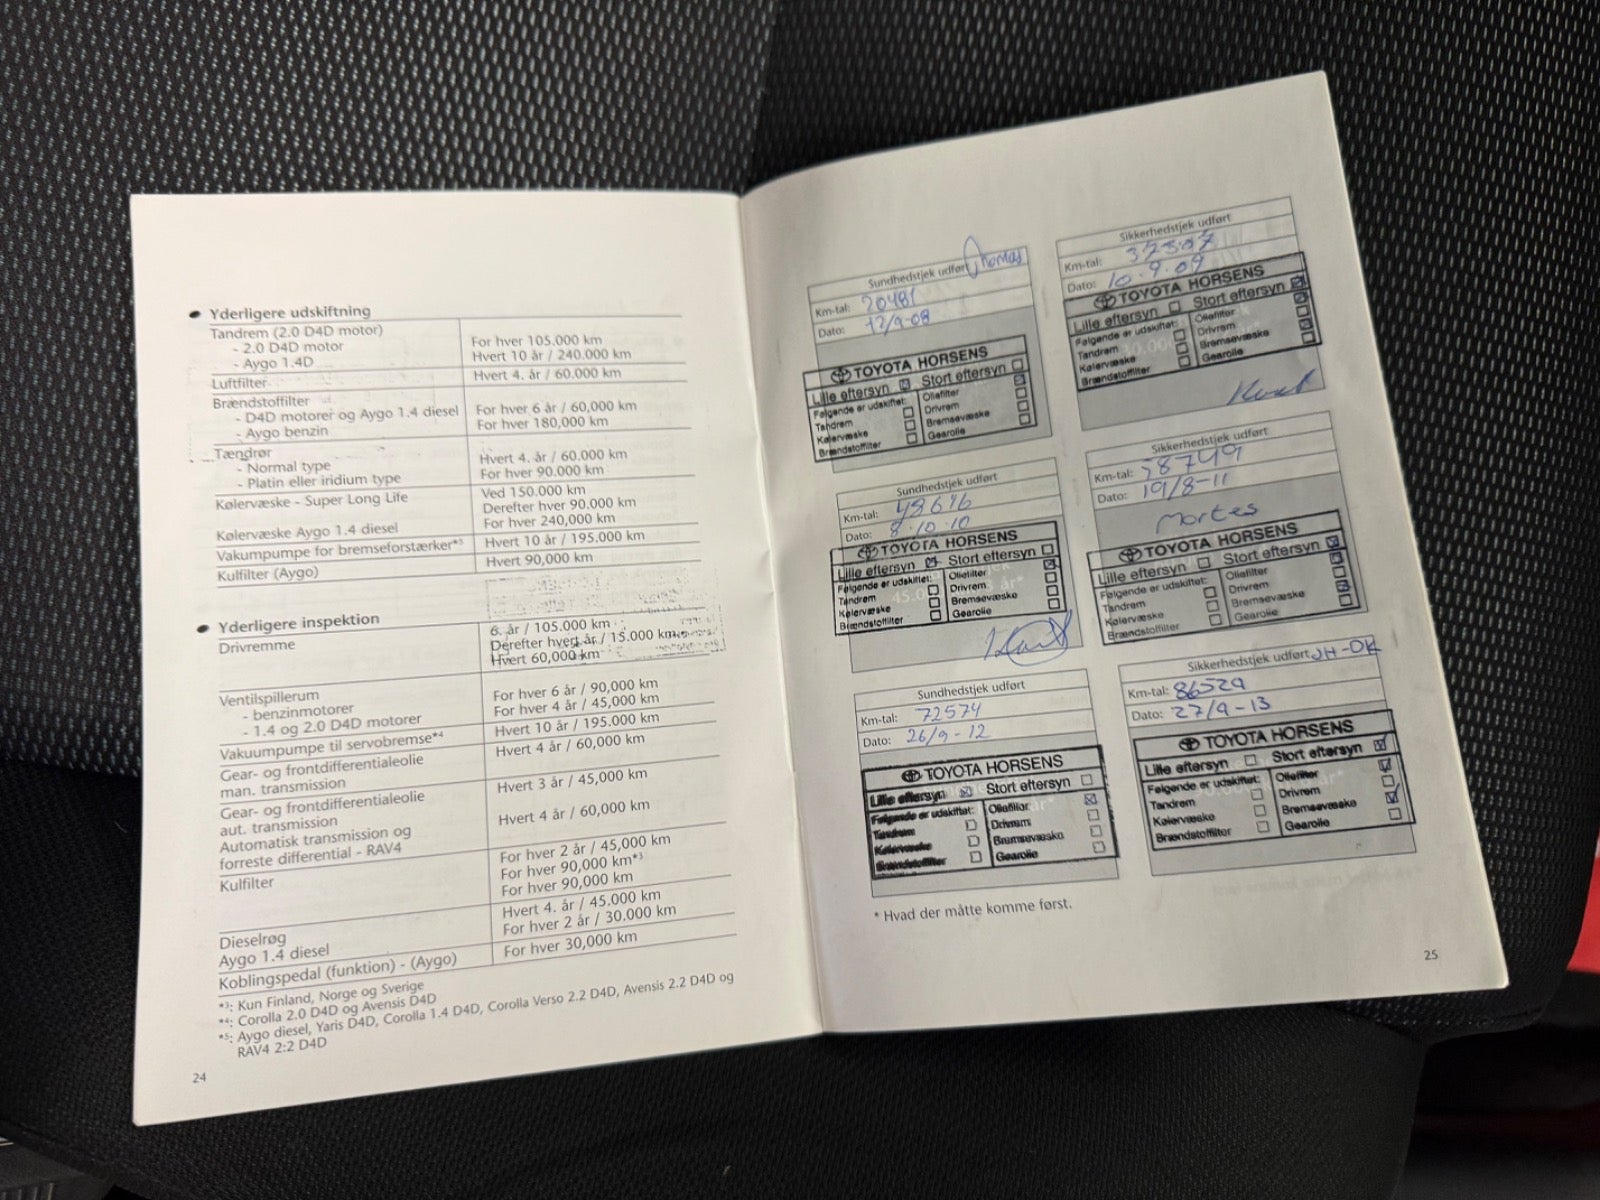 Yderligere udskiftning
Tandrem (2.0 D4D motor)
- 2.0 D4D motor For hver 105.000 km
- Aygo 1.4D Hvert 10 år / 240.000 km
Luftfilter Hvert 4. år / 60.000 km
Brændstoffilter
- D4D motorer og Aygo 1.4 diesel For hver 6 år / 60,000 km
- Aygo benzin For hver 180,000 km
Tændrør
- Normal type Hvert 4. år / 60.000 km
- Platin eller iridium type For hver 90.000 km
Kølervæske - Super Long Life Ved 150.000 km
Derefter hver 90.000 km
Kølervæske Aygo 1.4 diesel For hver 240,000 km
Vakumpumpe for bremseforstærker*5 Hvert 10 år / 195.000 km
Kulfilter (Aygo) Hvert 90,000 km
Yderligere inspektion
Drivremme 6. år / 105.000 km
Derefter hvert år / 15.000 km
Hvert 60,000 km
Ventilspillerum
- benzinmotorer For hver 6 år / 90,000 km
- 1.4 og 2.0 D4D motorer For hver 4 år / 45,000 km
Vakuumpumpe til servobremse*4 Hvert 10 år / 195.000 km
Gear- og frontdifferentialeolie Hvert 4 år / 60,000 km
man. transmission
Gear- og frontdifferentialeolie Hvert 3 år / 45,000 km
aut. transmission
Automatisk transmission og Hvert 4 år / 60,000 km
forreste differential - RAV4
Kulfilter For hver 2 år / 45,000 km
For hver 90,000 km*3
For hver 90,000 km
Dieselrøg Hvert 4. år / 45.000 km
Aygo 1.4 diesel For hver 2 år / 30.000 km
Koblingspedal (funktion) - (Aygo) For hver 30,000 km
*3: Kun Finland, Norge og Sverige
*4: Corolla 2.0 D4D og Avensis D4D
*5: Aygo diesel, Yaris D4D, Corolla 1.4 D4D, Corolla Verso 2.2 D4D, Avensis 2.2 D4D og
RAV4 2:2 D4D
24
Sundhedstjek udført Thomas
Km-tal: 20481
Dato: 12/9-08
TOYOTA HORSENS
Lille eftersyn Stort eftersyn
Følgende er udskiftet: Oliefilter
Tandrem Drivrem
Kølervæske Bremsevæske
Brændstoffilter Gearolie
Sikkerhedstjek udført
Km-tal: 37307
Dato: 10.9.09
TOYOTA HORSENS
Lille eftersyn Stort eftersyn
Følgende er udskiftet: Oliefilter
Tandrem Drivrem
Kølervæske Bremsevæske
Brændstoffilter Gearolie
Sundhedstjek udført
Km-tal: 48616
Dato: 8.10.10
TOYOTA HORSENS
Lille eftersyn Stort eftersyn
Følgende er udskiftet: Oliefilter
Tandrem Drivrem
Kølervæske Bremsevæske
Brændstoffilter Gearolie
Sikkerhedstjek udført
Km-tal: 58749
Dato: 19/8-11
Mortes
TOYOTA HORSENS
Lille eftersyn Stort eftersyn
Følgende er udskiftet: Oliefilter
Tandrem Drivrem
Kølervæske Bremsevæske
Brændstoffilter Gearolie
Sundhedstjek udført
Km-tal: 72574
Dato: 26/9-12
TOYOTA HORSENS
Lille eftersyn Stort eftersyn
Følgende er udskiftet: Oliefilter
Tandrem Drivrem
Kølervæske Bremsevæske
Brændstoffilter Gearolie
Sikkerhedstjek udført JH-OK
Km-tal: 86529
Dato: 27/9-13
TOYOTA HORSENS
Lille eftersyn Stort eftersyn
Følgende er udskiftet: Oliefilter
Tandrem Drivrem
Kølervæske Bremsevæske
Brændstoffilter Gearolie
* Hvad der måtte komme først.
25